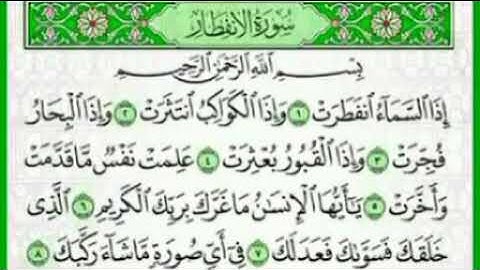 سُورَةُ الِانفِطَارِ
بِسْمِ اللَّهِ الرَّحْمَٰنِ الرَّحِيمِ
إِذَا السَّمَاءُ انفَطَرَتْ ١ وَإِذَا الْكَوَاكِبُ انتَثَرَتْ ٢ وَإِذَا الْبِحَارُ
فُجِّرَتْ ٣ وَإِذَا الْقُبُورُ بُعْثِرَتْ ٤ عَلِمَتْ نَفْسٌ مَّا قَدَّمَتْ
وَأَخَّرَتْ ٥ يَٰأَيُّهَا الْإِنسَٰنُ مَا غَرَّكَ بِرَبِّكَ الْكَرِيمِ ٦ الَّذِي
خَلَقَكَ فَسَوَّىٰكَ فَعَدَلَكَ ٧ فِي أَيِّ صُورَةٍ مَّا شَاءَ رَكَّبَكَ ٨